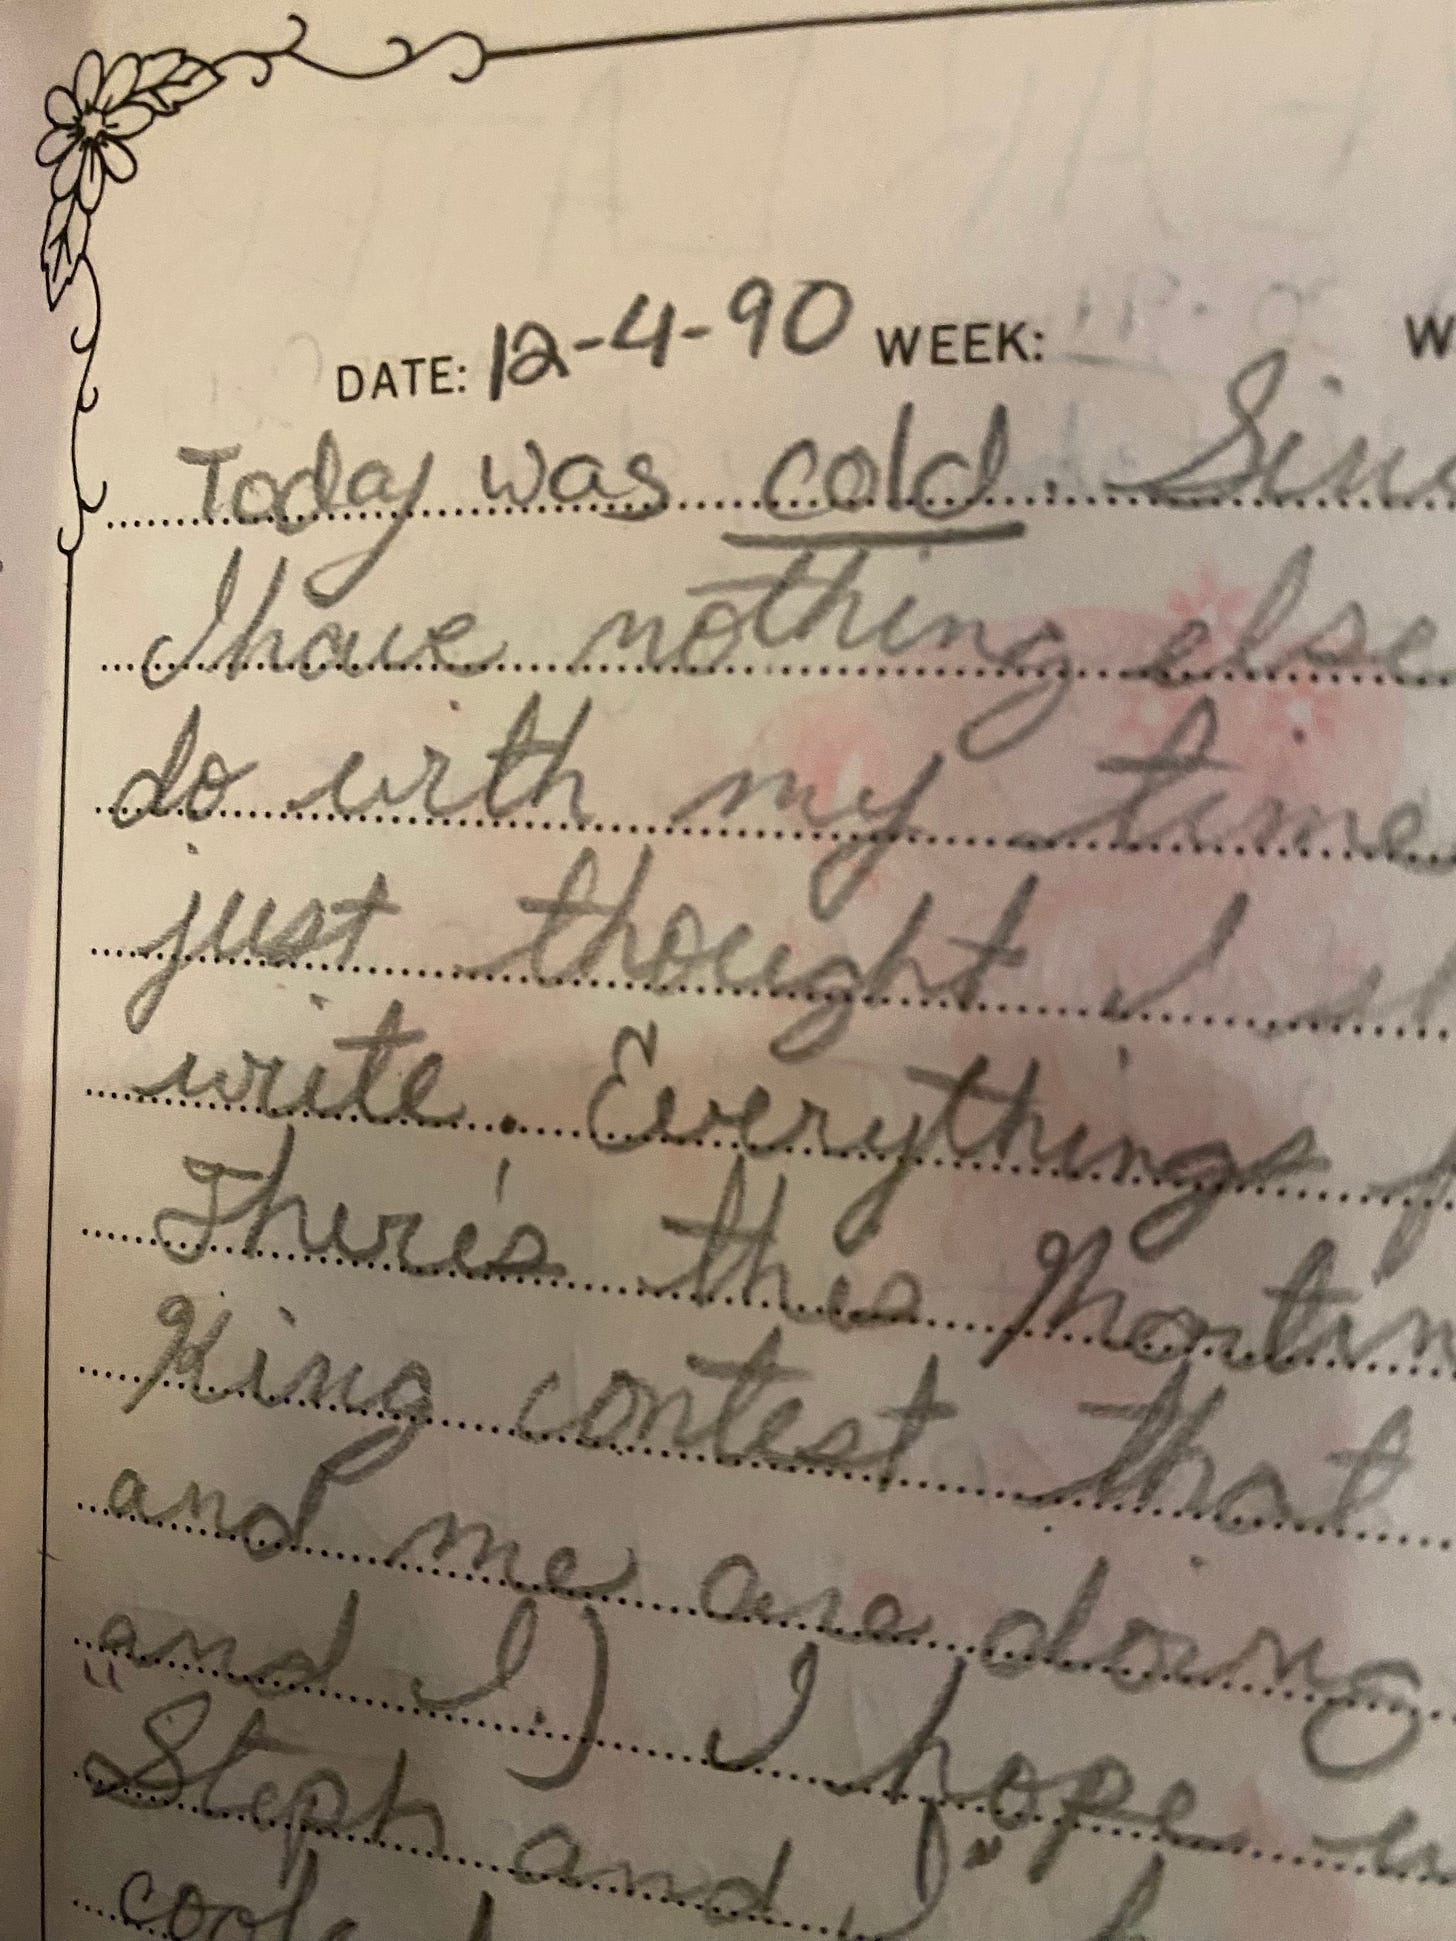 DATE: 12-4-90 WEEK: W
Today was cold. Sinc
I have nothing else
do with my time
just thought I sh
write. Everythings f
There's this Martin
King contest that
and me are doing
and I.) I hope w
"Steph and I"